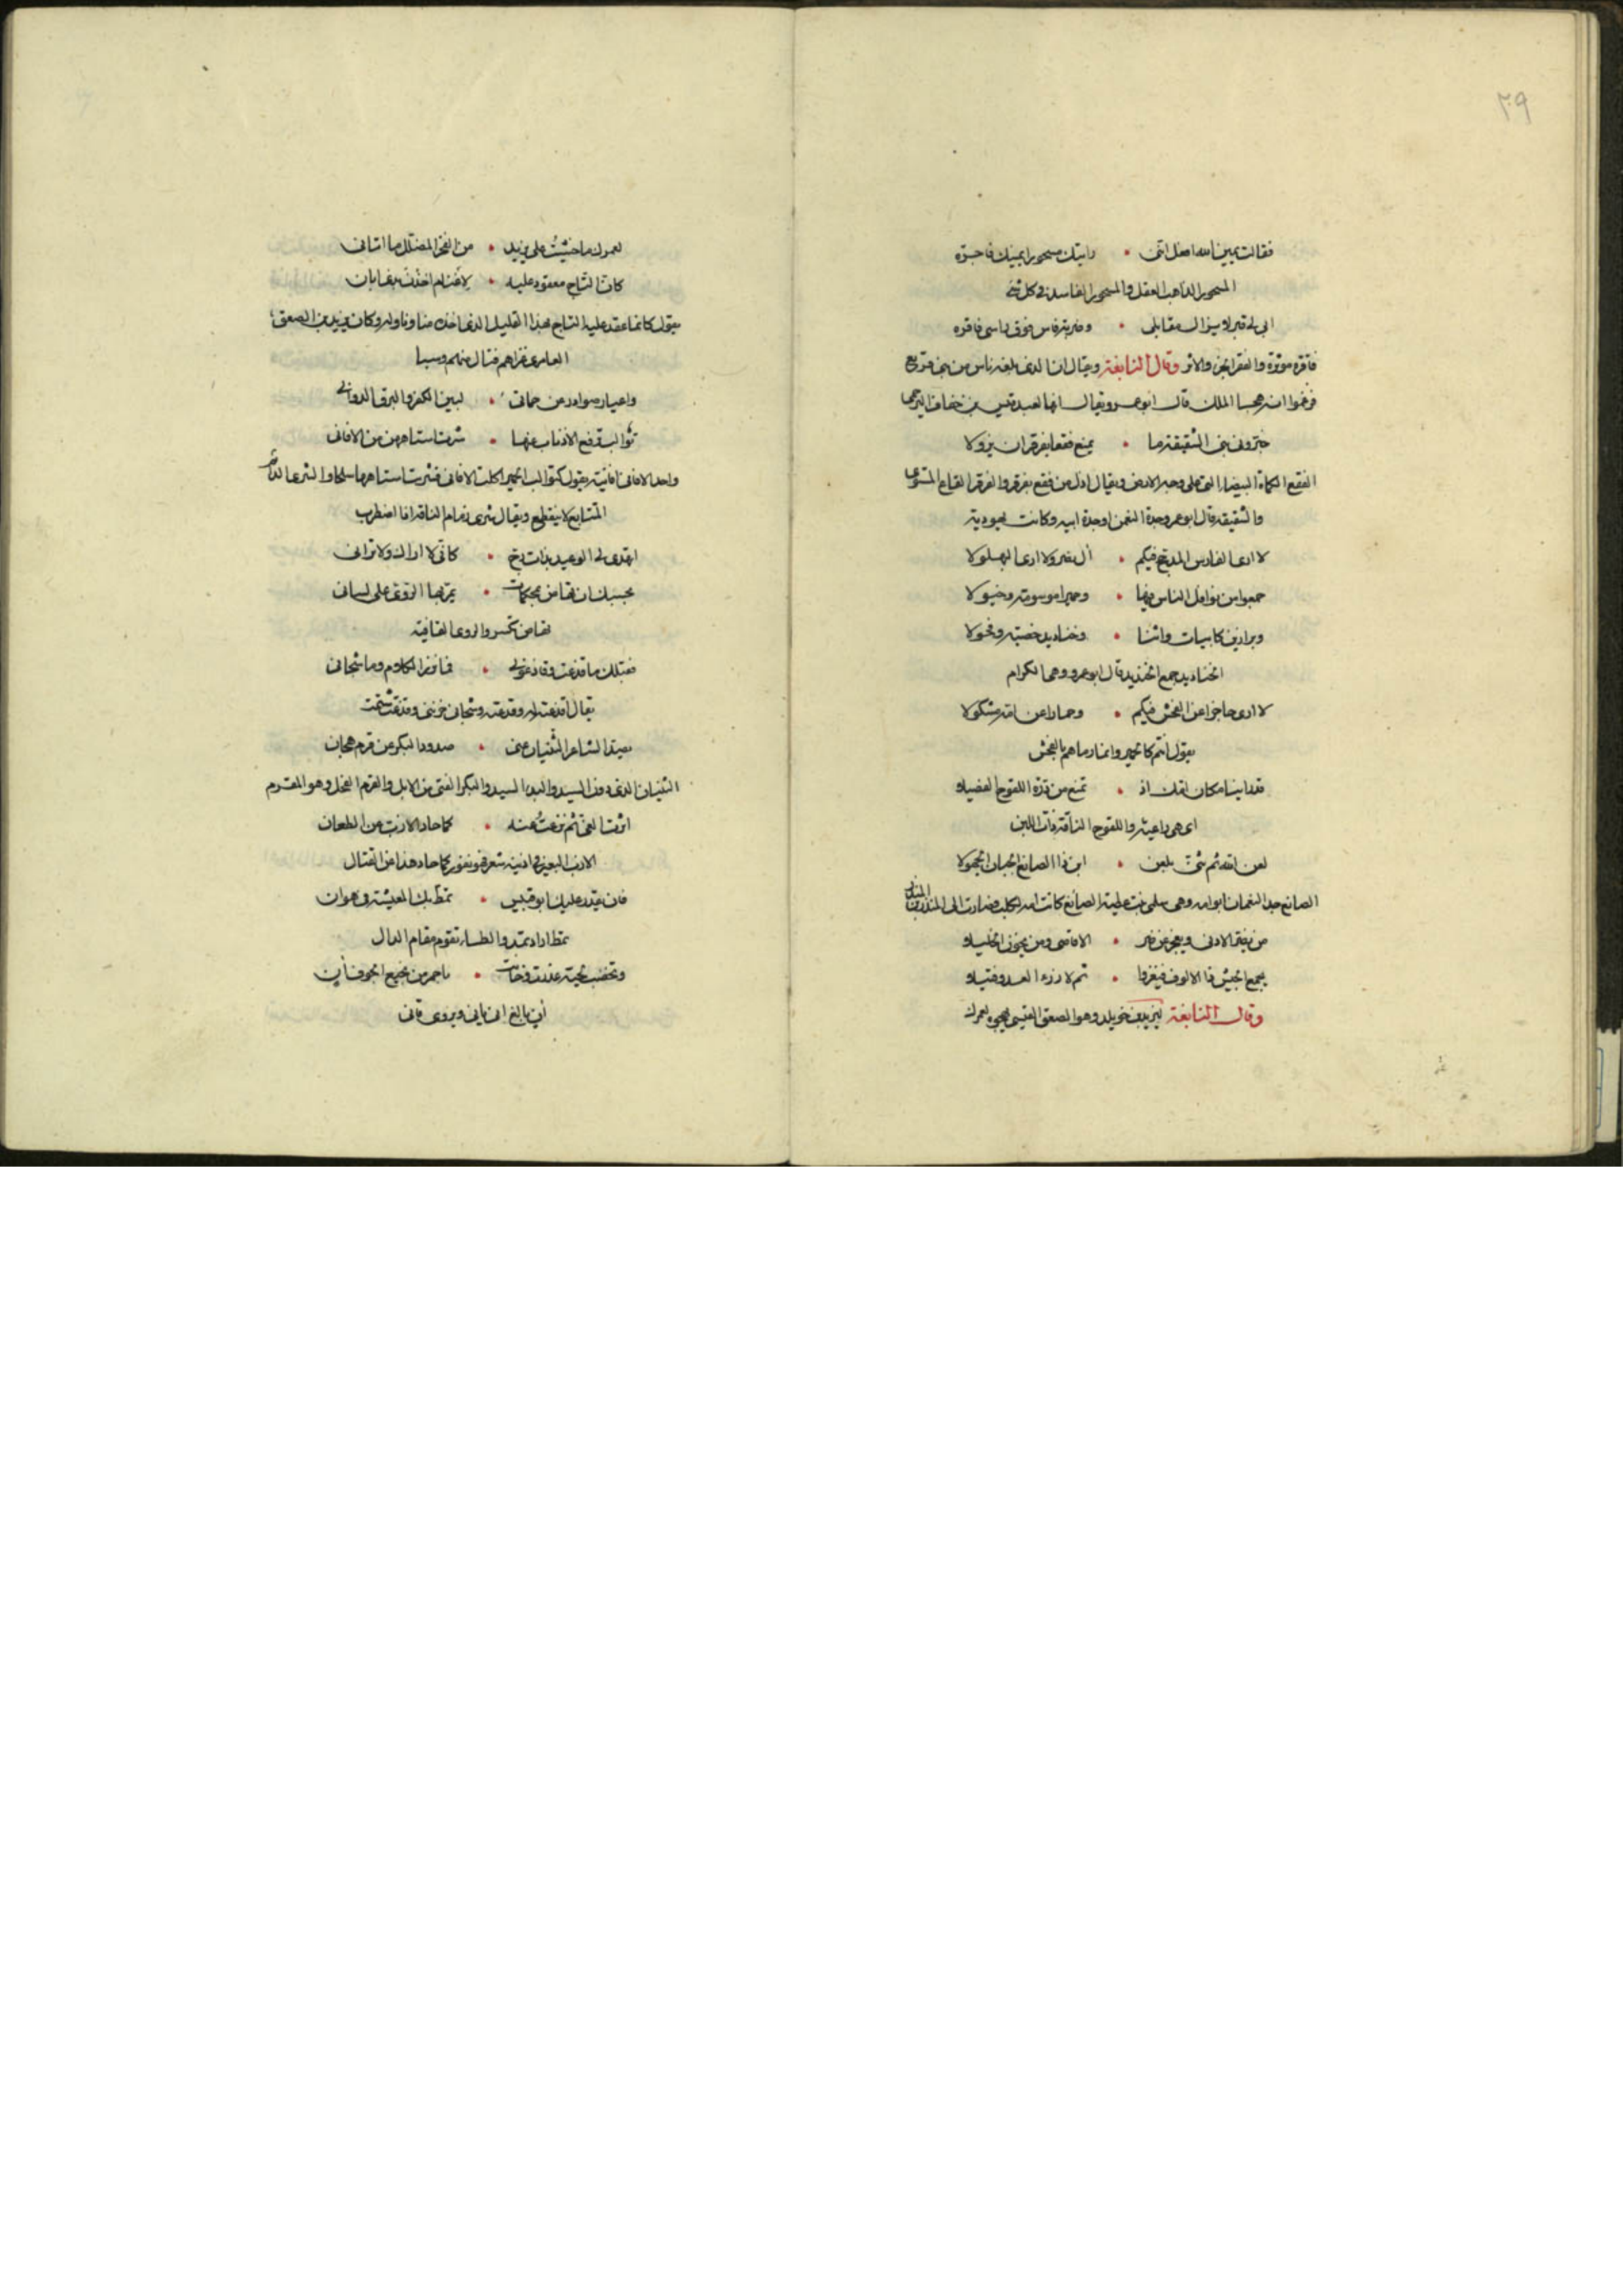 ٢٠٩
فقالت يمين الله افعل انني • رايتك مسحورا يمينك فاجره
المسحور الذاهب العقل والمسحور الفاسد في كل شئ
ابى لي قبر لا يزال مقابلي • وضربة فاس فوق راسى فاقره
فاقرة موثرة والفقر الحز والاثر وقال النابغة ويقال ان الذى بلغه ناس من بنى قريع
فزعموا انه هجا الملك قال ابو عمرو ويقال انها لعبد قيس بن خفاف البرجمى
خبرونى بنى الشقيقة ما • يمنع فقعا بقرقر ان يزولا
الفقع الكماة البيضا التى على وجه الارض ويقال اذل من فقع بقرقر والقرقر القاع المستوى
والشقيقة قال ابو عمرو جدة النعمن او جدة ابيه وكانت يهودية
لا ارى الفارس المدجج فيكم • أل نصر ولا ارى البهلولا
جمعوا من نوافل الناس • وحميرا موسومة وخيولا
وبراذين كابيات واتنا • وخناذيذ خصية وفحولا
الخناذيذ جمع الخنذيذ قال ابو عمرو وهى الكرام
لا ارى حاجزا عن الفحش فيكم • وحمارا عن امه مشكولا
يقول انتم كالحمير وانما رماهم بالفحش
مكان امك اذ • تمنع من درة اللقوح الفصيلا
اى هى راعية واللقوح الناقة ذات اللبن
لعن الله ثم ثنى بلعن • ابن ذا الصائغ الجبان الجهولا
الصائغ جد النعمان ابو امه وهى سلمى بنت عطية الصائغ كانت امه لكلب فصارت الى المنذر بن المنذر
من يضر الادنى ويعجز عن ضر • الاقاصى ومن يخون الخليلا
يجمع الجيش ذا الالوف فيغزوا • ثم لا يرزء العدو فتيلا
وقال النابغة ليزيد بن خويلد وهو الصعق القيسى يهجوه لعمرك
لعمرك ما خشيت على يزيد • من الفخر المضلل ما اتانى
كان التاج معقود عليه • لاغنام اخذن بذى ابان
يقول كانما عقد عليه التاج بهذا القليل الذى اخذه منا وناوله وكان يزيد بن الصعق
العامرى غزاهم فنال منهم وسبا
واعيار صوادر عن حماتى • لبين الكفر والبرق الدوانى
ثوالب ترفع الاذناب عنها • شرت استاههن من الافانى
واحد الافانى افانية يقول كثوالب الحمير اكلت الافانى فشرت استاهها سلحا والشرى الدائم
المتتابع لا ينقطع ويقال شرى زمام الناقة اذا اضطرب
اتهدى لى الوعيد بذات رخ • كانى لا اراك ولا ترانى
بحسبك ان تهاض بمحكمات • يمر بها الروى على لسانى
تهاض تكسر والروى القافية
فقبلك ما قذعت وقاذعونى • فما نزر الكلام وما شجانى
يقال اقذعته وقذعته وشجان حزننى وقذعت شتمت
يصد الشاعر الثنيان عنى • صدود البكر عن قرم هجان
الثنيان الذى دون السيد والبدا السيد والبكر الفتى من الابل والقرم الفحل وهو المقرم
اثرت الغى ثم نزعت عنه • كما حاد الازب عن الطعان
الازب البعير فى اذنيه شعر فهو نفور كما حاد هذا عن القتال
فان يقدر عليك ابو قبيس • تمط بك المعيشة فى هوان
تمط اراد تمد والطاء تقوم مقام الدال
وتخضب لحية غدرت وخانت • باحمر من نجيع الجوف آن
أن بالغ انى يانى ويروى قانى